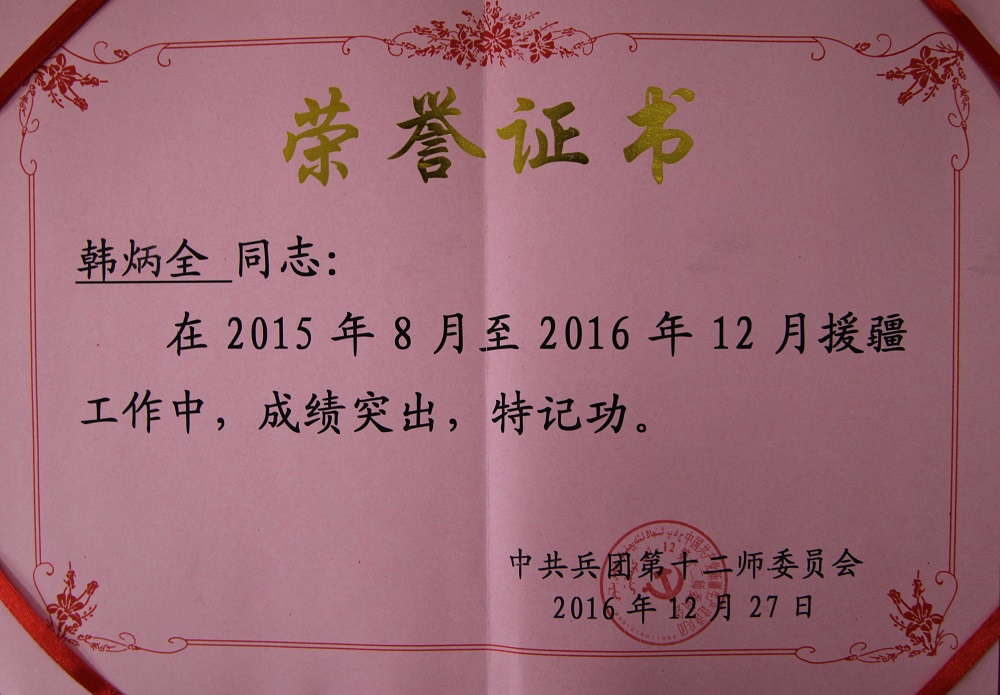 荣誉证书
韩炳全 同志:
在 2015 年 8 月至 2016 年 12 月援疆
工作中，成绩突出，特记功。
中共兵团第十二师委员会
2016 年 12 月 27 日